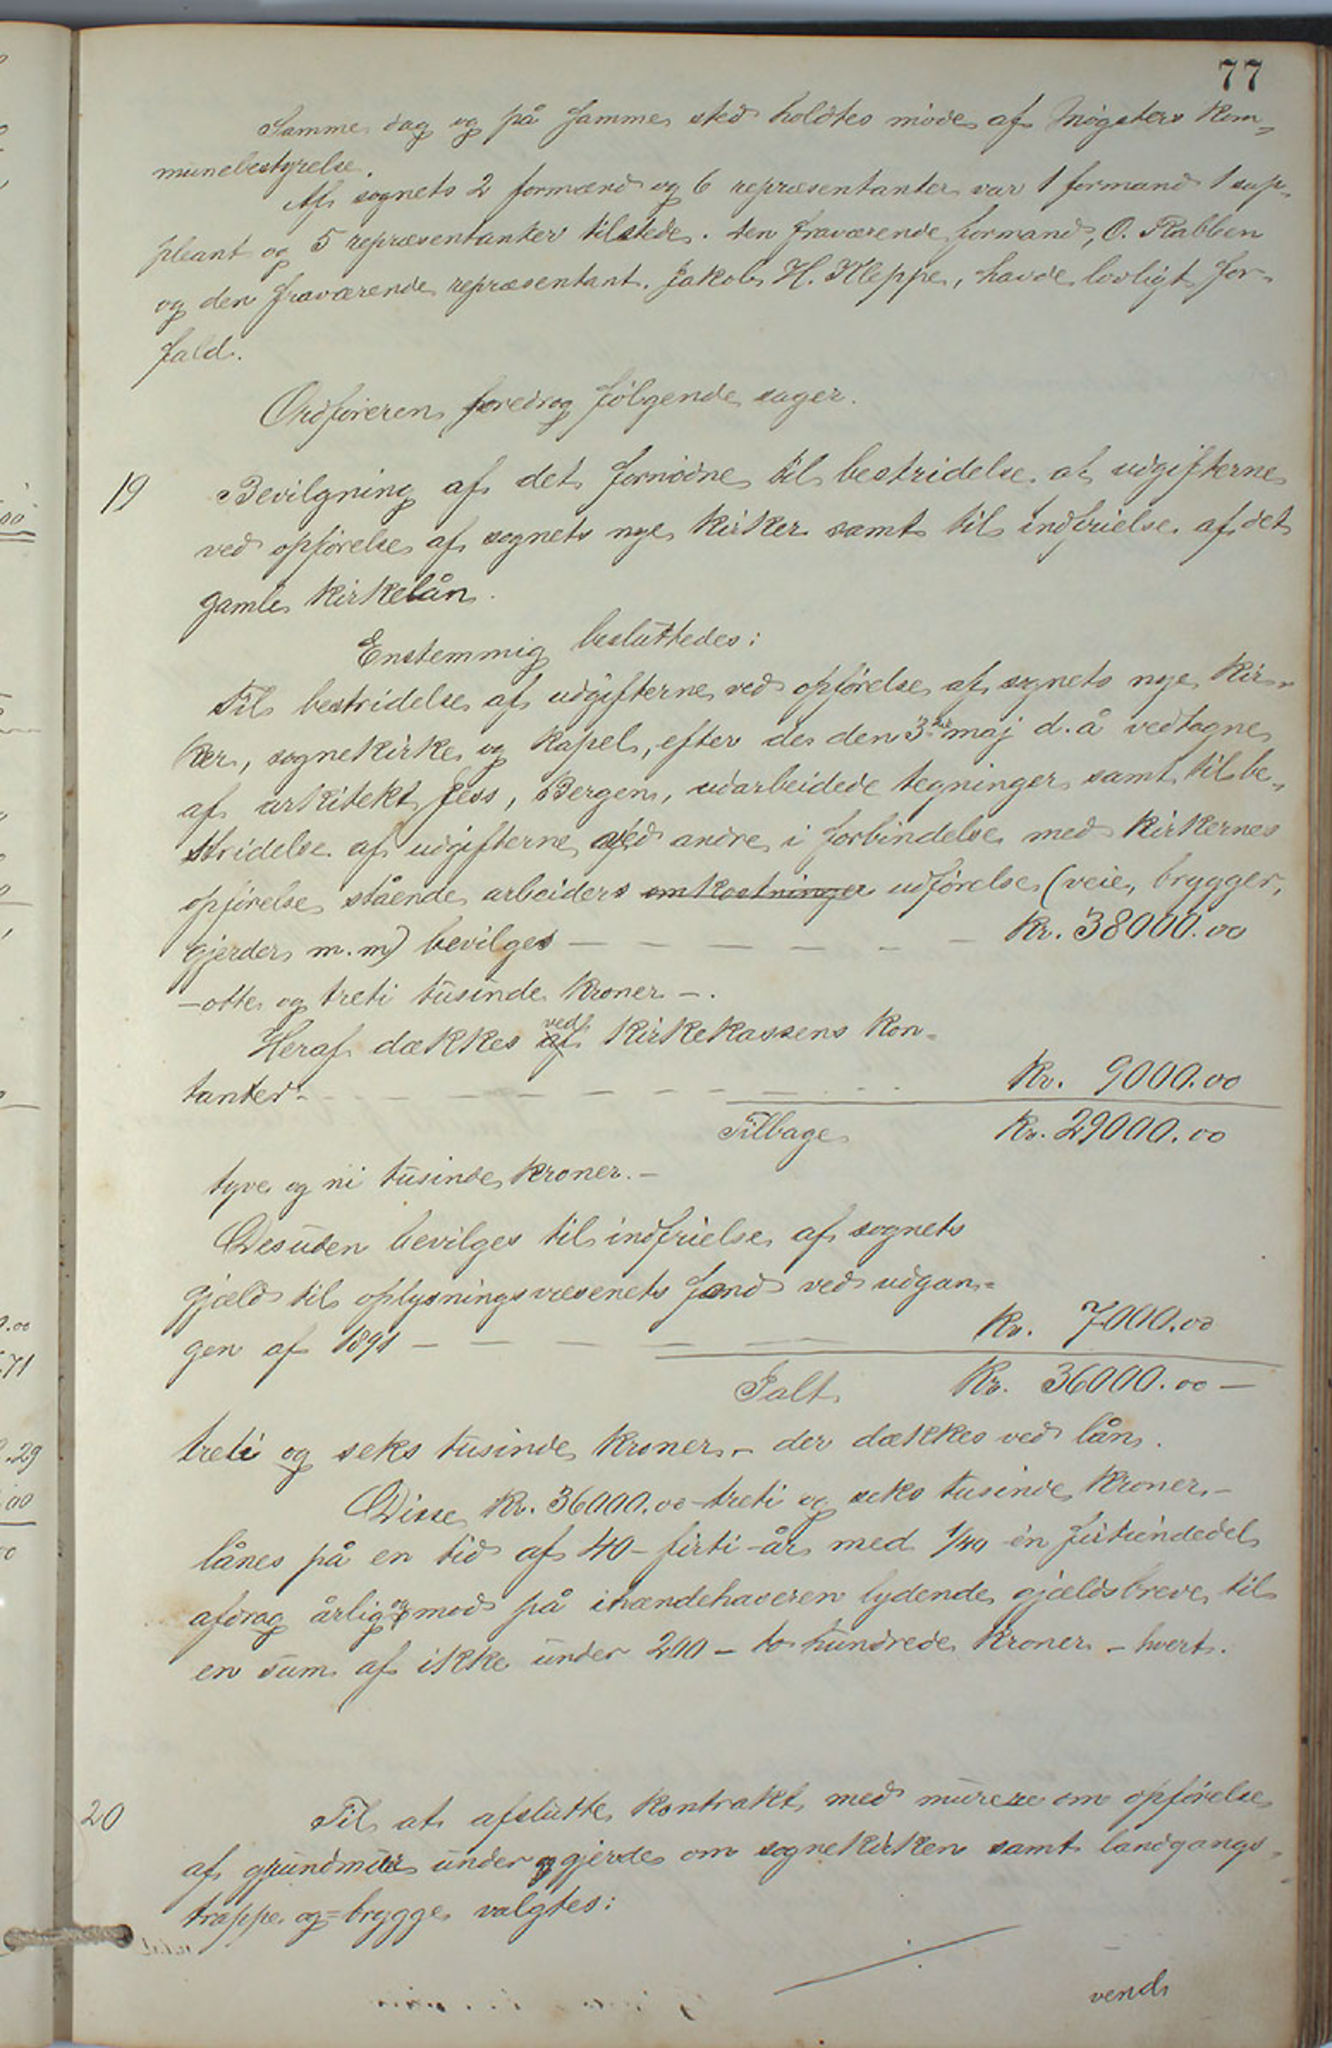 77
Samme dag og på samme sted holdtes møde af Møgsters kom-
munebestyrelse.
Af sognets 2 formænd og 6 repræsentanter var 1 formand 1 sup-
pleant og 5 repræsentanter tilstede. Den fraværende formand, O. Rabben
og den fraværende repræsentant Jakob H. Kleppe, havde lovligt for-
fald.
Ordføreren foredrog følgende sager.
19 Bevilgning af det fornødne til bestridelse af udgifterne
ved opførelse af sognets nye kirker samt til indfrielse af det
gamle kirkelån.
Enstemmig besluttedes:
Til bestridelse af udgifterne ved opførelse af sognets nye kir-
ker, sognekirke og kapel, efter de den 3die maj d. å vedtagne
af arkitekt Jess, Bergen, udarbeidede tegninger samt til be-
stridelse af udgifterne ved andre i forbindelse med kirkernes
opførelse stående arbeiders omkostninger udførelse (veie, brygger,
gjerder m.m) bevilges — — — — — — — kr. 38000.00
- otte og treti tusinde kroner -.
Heraf dækkes af ved kirkekassens kon-
tanter - - - — — — — — - - kr. 9000.00
Tilbage kr. 29000.00
tyve og ni tusinde kroner. —
Desuden bevilges til indfrielse af sognets
gjæld til oplysningsvæsenets fond ved udgan-
gen af 1891 — — — — — — kr. 7000.00
Ialt kr. 36000.00 —
treti og seks tusinde kroner - der dækkes ved lån.
Disse kr. 36000.00 - treti og seks tusinde kroner. -
lånes på en tid af 40 - firti - år med 1/40 én firtiendedel
afdrag årlig og mod på ihændehaveren lydende gjældsbreve til
en sum af ikke under 200 - to hundrede kroner - hvert.
20 Til at afslutte kontrakt med murere om opførelse
af grundmur under og gjerde om sognekirken samt landgangs-
trappe og = brygge valgtes:
vend